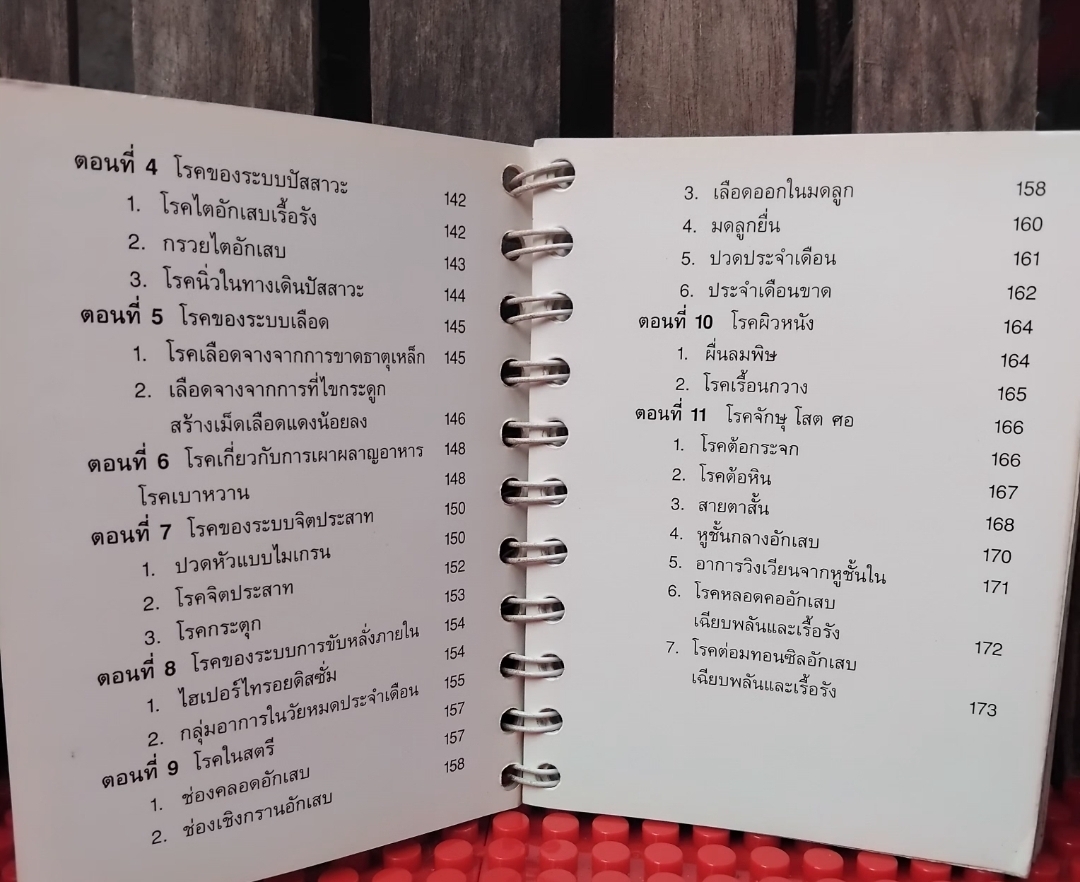 ตอนที่ 4 โรคของระบบปัสสาวะ 142
1. โรคไตอักเสบเรื้อรัง 142
2. กรวยไตอักเสบ 143
3. โรคนิ่วในทางเดินปัสสาวะ 144
ตอนที่ 5 โรคของระบบเลือด 145
1. โรคเลือดจางจากการขาดธาตุเหล็ก 145
2. เลือดจางจากการที่ไขกระดูก
สร้างเม็ดเลือดแดงน้อยลง 146
ตอนที่ 6 โรคเกี่ยวกับการเผาผลาญอาหาร 148
โรคเบาหวาน 148
ตอนที่ 7 โรคของระบบจิตประสาท 150
1. ปวดหัวแบบไมเกรน 150
2. โรคจิตประสาท 152
3. โรคกระตุก 153
ตอนที่ 8 โรคของระบบการขับหลั่งภายใน 154
1. ไฮเปอร์ไทรอยดิสซั่ม 154
2. กลุ่มอาการในวัยหมดประจำเดือน 155
ตอนที่ 9 โรคในสตรี 157
1. ช่องคลอดอักเสบ 157
2. ช่องเชิงกรานอักเสบ 158
3. เลือดออกในมดลูก 158
4. มดลูกยื่น 160
5. ปวดประจำเดือน 161
6. ประจำเดือนขาด 162
ตอนที่ 10 โรคผิวหนัง 164
1. ผื่นลมพิษ 164
2. โรคเรื้อนกวาง 165
ตอนที่ 11 โรคจักษุ โสต ศอ 166
1. โรคต้อกระจก 166
2. โรคต้อหิน 167
3. สายตาสั้น 168
4. หูชั้นกลางอักเสบ 170
5. อาการวิงเวียนจากหูชั้นใน 171
6. โรคหลอดคออักเสบ
เฉียบพลันและเรื้อรัง 172
7. โรคต่อมทอนซิลอักเสบ
เฉียบพลันและเรื้อรัง 173